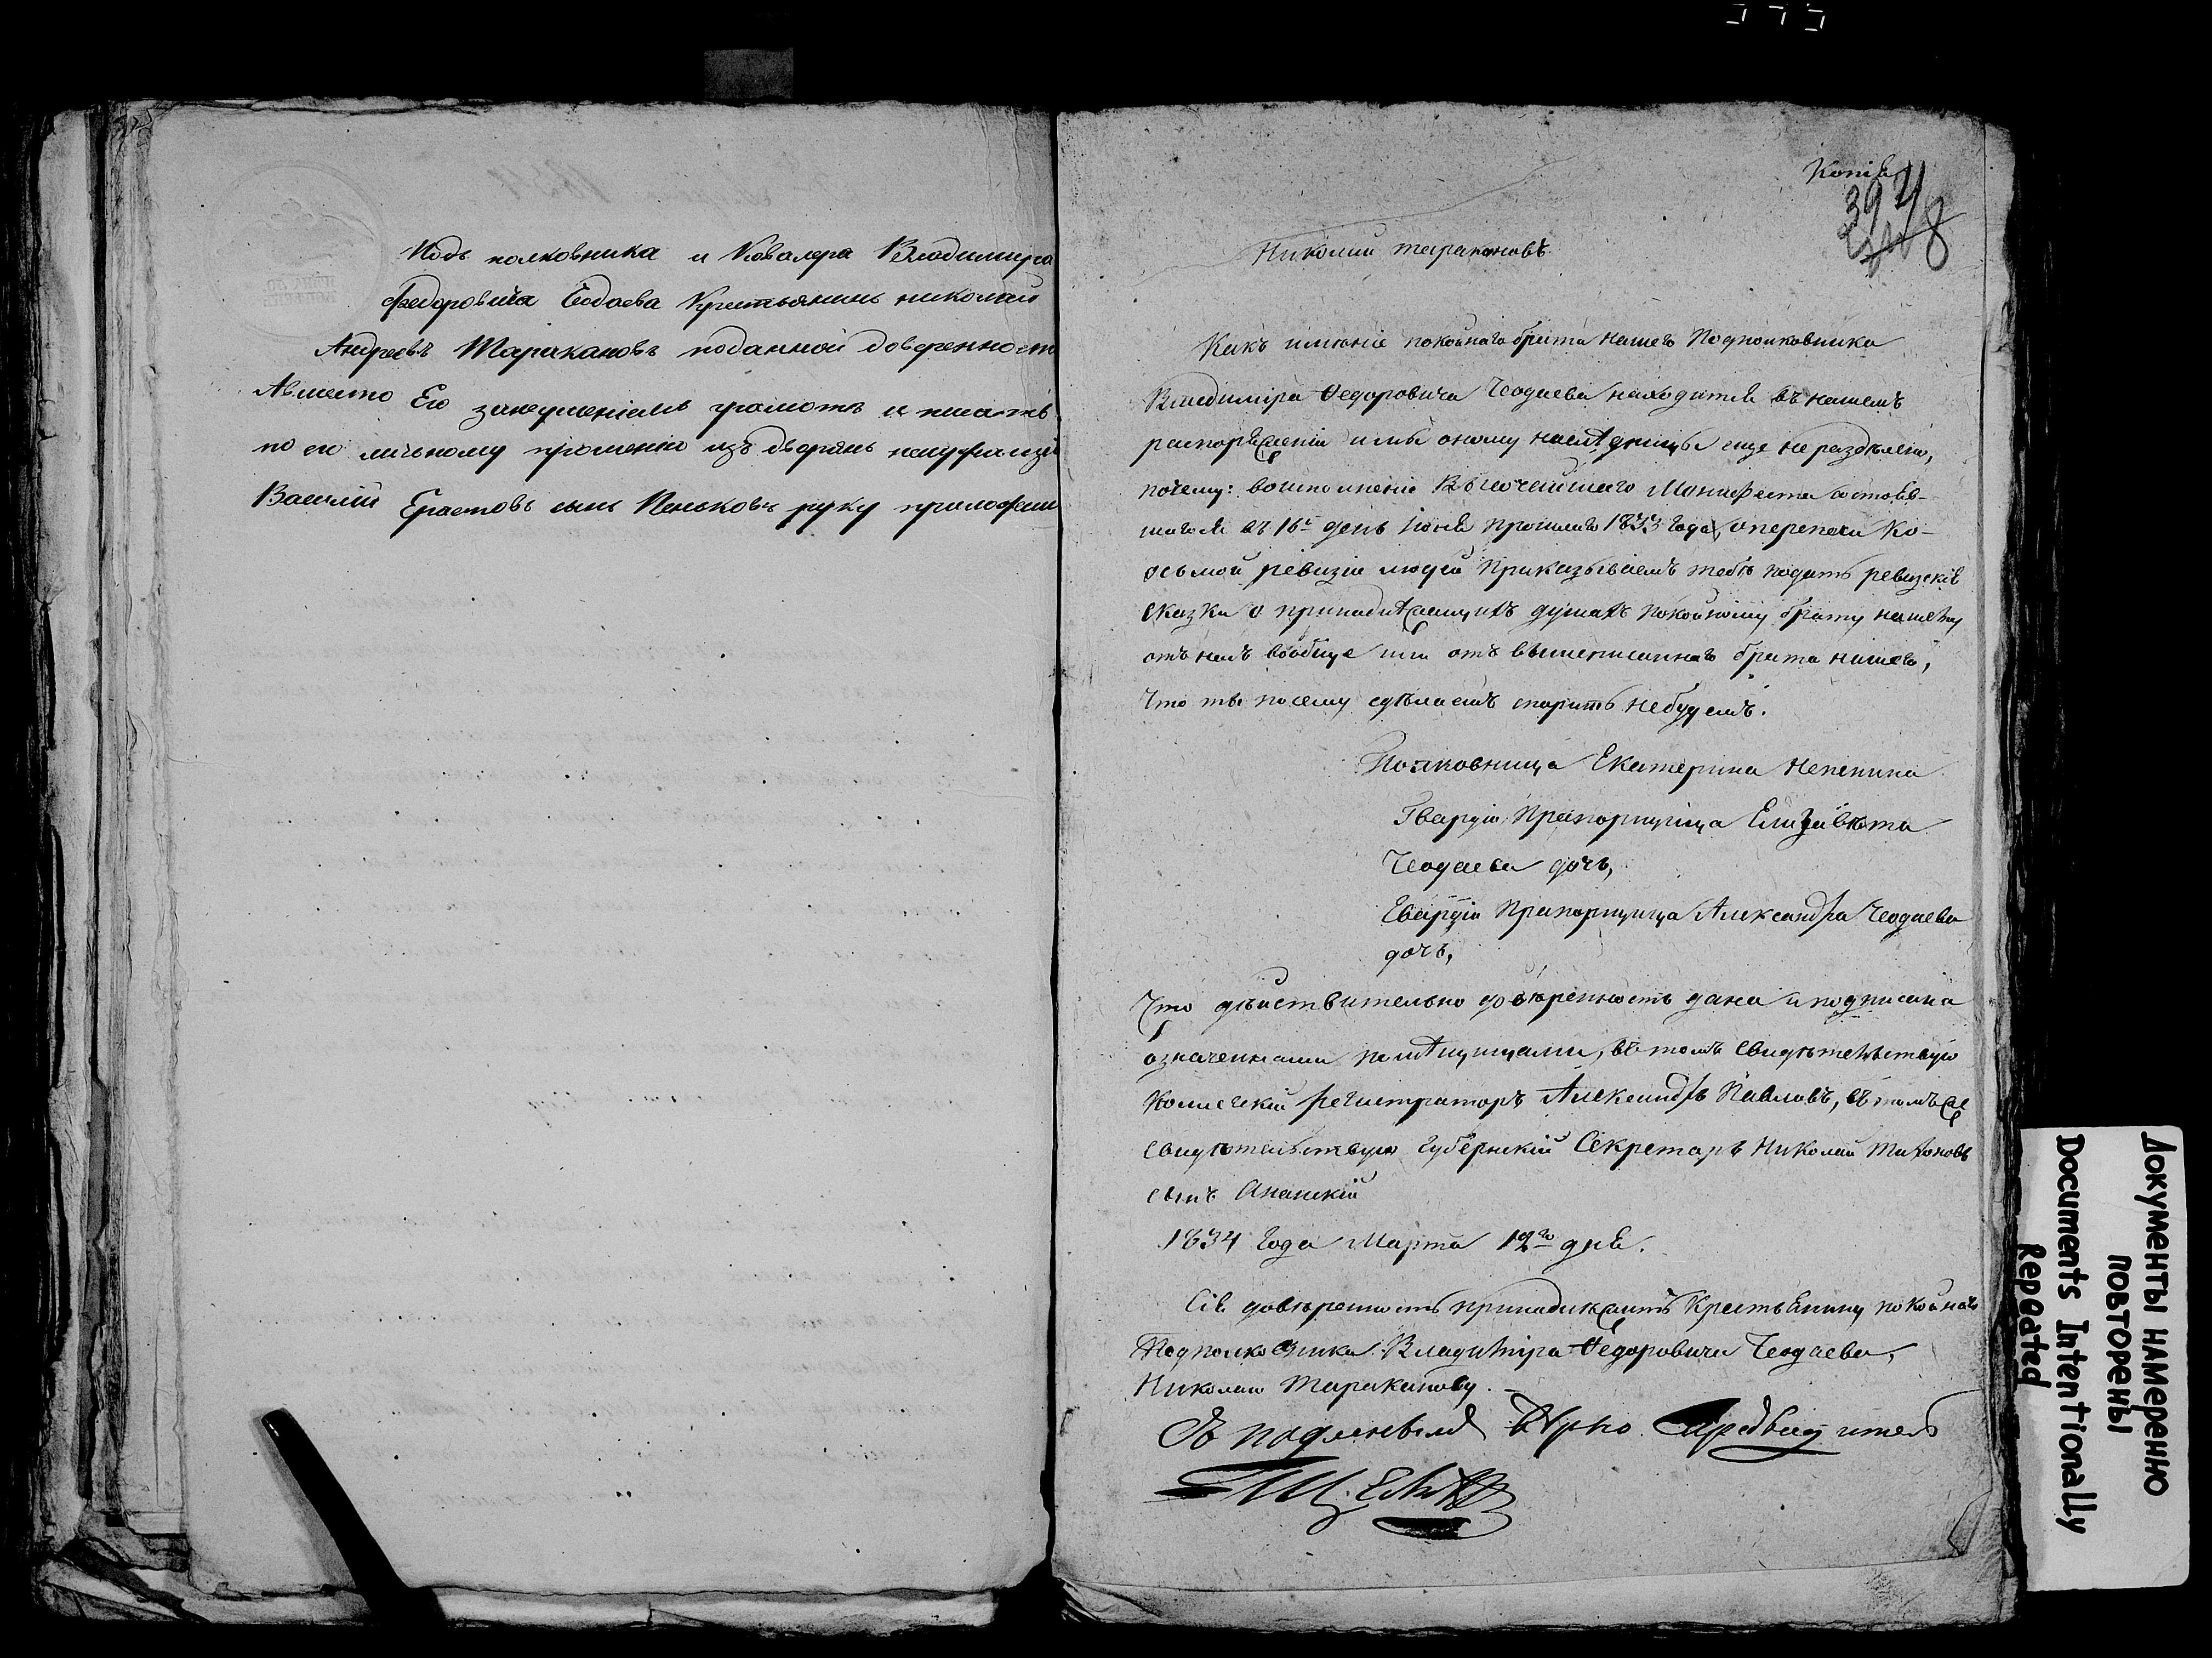 Подъ полковника и Ковалера Владимира
Федоровича Чеодаева Крестьянинъ николай
Андреевъ Таракановъ поданной доверенности
Авместо Его занеумениемъ грамоте и писать
по его личьному прошению изъ дворянъ
Василий Ерастовъ сынъ Пеньковъ руку приложил
Копія
394
8
Николай таракановъ
Какъ имѣніе покойнаго брата нашего Подполковника
Владиміра Ѳедоровича Чеодаева находится въ нашемъ
распоряженіи и мы оному наслѣдницы еще не раздѣлены,
почему: воисполненіе Высочайшаго Манифеста состояв-
шагося въ 16й день Іюня прошлаго 1833 года, о переписи
осьмой ревизіи людей приказываемъ тебѣ подать ревизскія
сказки о принадлежащихъ душахъ покойному брату нашему
отъ насъ вообще или отъ вышеписаннаго брата нашего,
Что ты посему сдѣлаешъ спорить небудемъ.
Полковница Екатерина Непенина
Гвардіи Прапорщица Елизавѣта
Чеодаева дочь,
Гвардіи Прапорщица Александра Чеодаева
дочь,
Что дѣйствительно довѣренность дана и подписана
означенными помѣщицами, въ томъ свидѣтельствую
Колежскій регистраторъ Александръ Павловъ, въ томъ же
свидѣтельствую Губернскій Секретарь Николай Тихоновъ
сынъ
1834 года Марта 12го дня.
Сія довѣренность принадлежитъ Крестьянину покойнаго
Подполковника Владиміра Ѳедоровича Чеодаева,
Николаю Тараканову.
Съ подленнымъ вѣрно
Документы намеренно
повторены
Documents Intentionally
Repeated